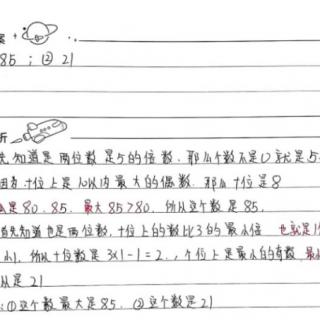 案
85 ; ② 21
析
先知道是两位数是5的倍数,那么个数不是0就是5.
因为十位上是10以内最大的偶数.那么十位是8
是80.85. 最大85>80,所以这个数是85.
首先知道也是两位数,十位上的数比3的最小倍 也就是1
小1,所以十位数是3×1-1=2.,个位上是最小的奇数 最
以是21
:①这个数最大是85. ②这个数是21